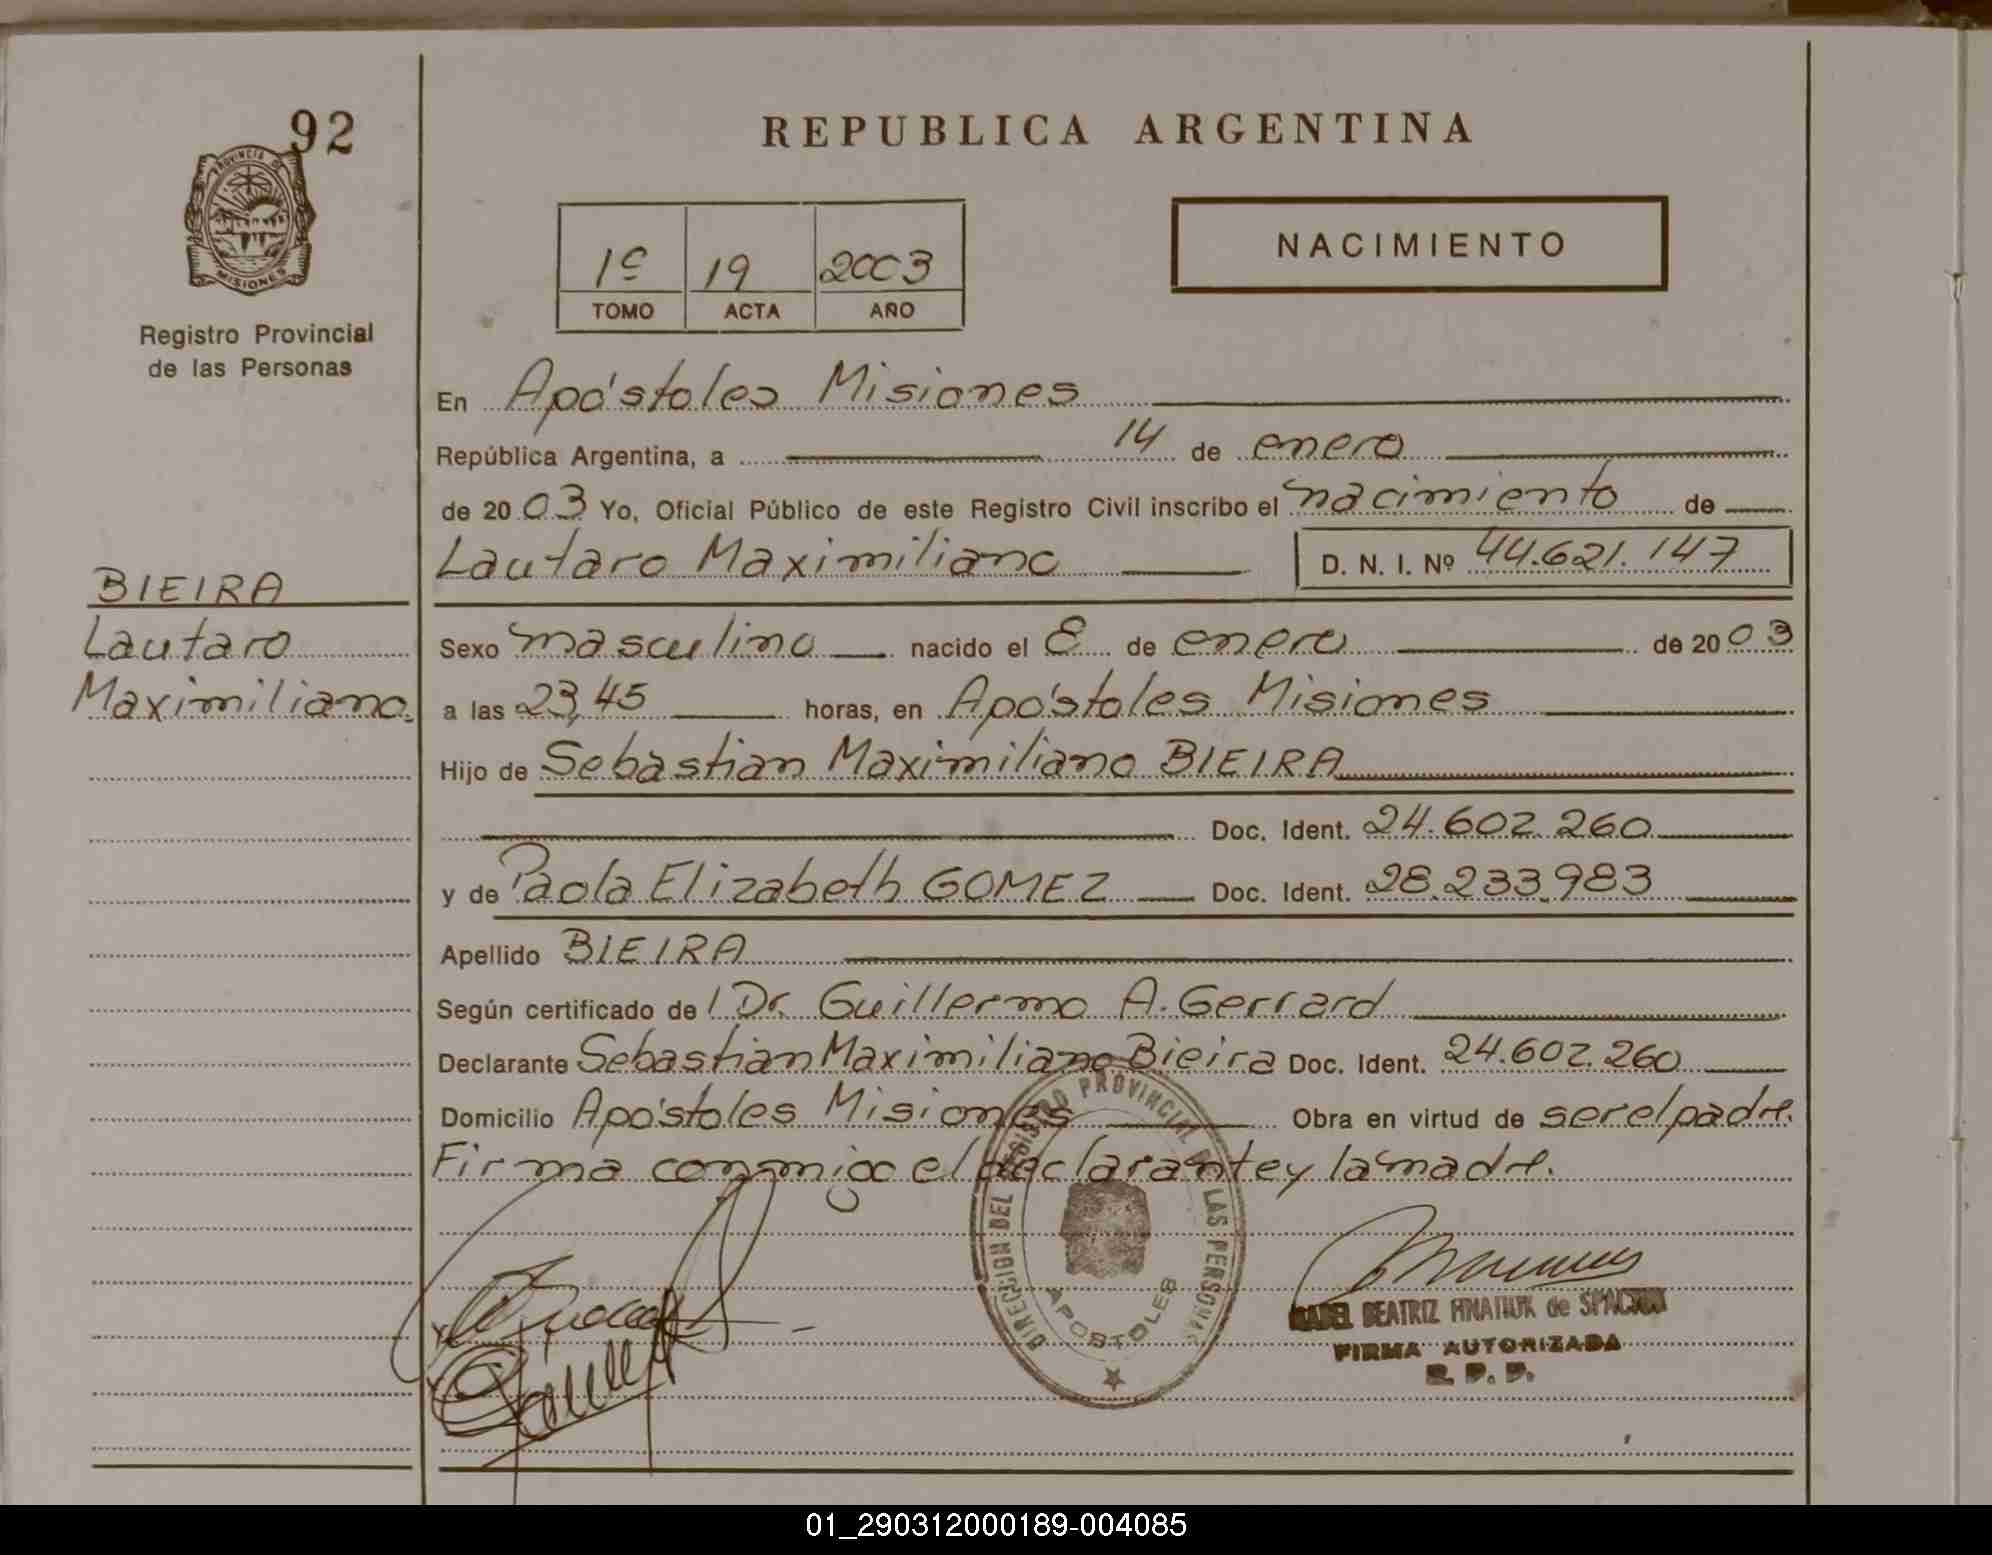 92
PROVINCIA DE
MISIONES
Registro Provincial
de las Personas
BIEIRA
Lautaro
Maximiliano.
REPUBLICA ARGENTINA
1º 19 2003
TOMO ACTA AÑO
NACIMIENTO
En Apóstoles Misiones
República Argentina, a 14 de enero
de 2003 Yo, Oficial Público de este Registro Civil inscribo el nacimiento de
Lautaro Maximiliano D. N. I. Nº 44.621.147
Sexo masculino nacido el 8 de enero de 2003
a las 23,45 horas, en Apóstoles Misiones
Hijo de Sebastian Maximiliano BIEIRA
Doc. Ident. 24.602.260
y de Paola Elizabeth GOMEZ Doc. Ident. 28.233.983
Apellido BIEIRA
Según certificado de l Dr. Guillermo A. Gerrard
Declarante Sebastian Maximiliano Bieira Doc. Ident. 24.602.260
Domicilio Apóstoles Misiones Obra en virtud de ser el padre.
Firma conmigo el declarante y la madre.
DIRECCION DEL REGISTRO PROVINCIAL DE LAS PERSONAS
APOSTOLES
BEATRIZ de
FIRMA AUTORIZADA
R. P. P.
01_290312000189-004085